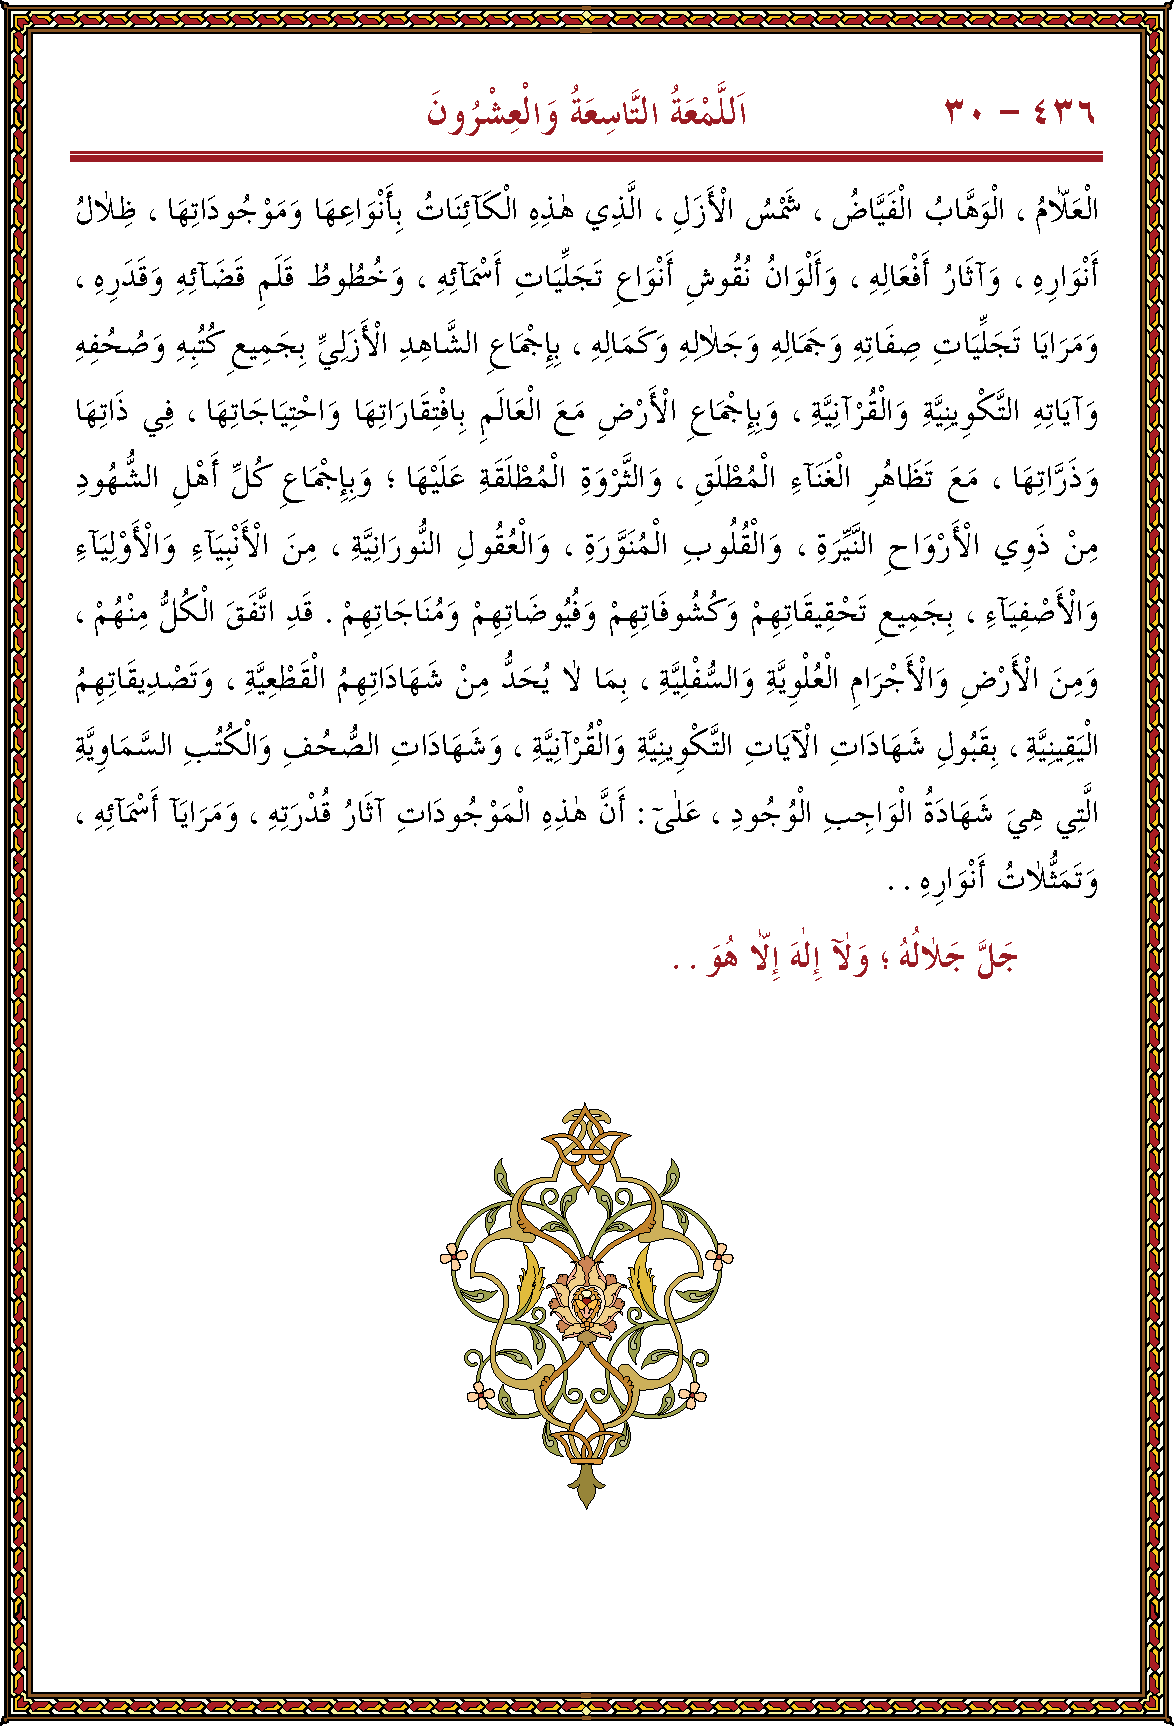 ٤٣٦ – ٣٠ اَللَّمْعَةُ التَّاسِعَةُ وَالْعِشْرُونَ
الْعَلّٰامُ ، الْوَهَّابُ الْفَيَّاضُ ، شَمْسُ الْأَزَلِ ، الَّذِي هٰذِهِ الْكَآئِنَاتُ بِأَنْوَاعِهَا وَمَوْجُودَاتِهَا ، ظِلٰالُ
أَنْوَارِهِ ، وَآثَارُ أَفْعَالِهِ ، وَأَلْوَانُ نُقُوشِ أَنْوَاعِ تَجَلِّيَاتِ أَسْمَآئِهِ ، وَخُطُوطُ قَلَمِ قَضَآئِهِ وَقَدَرِهِ ،
وَمَرَايَا تَجَلِّيَاتِ صِفَاتِهِ وَجَمَالِهِ وَجَلٰالِهِ وَكَمَالِهِ ، بِإِجْمَاعِ الشَّاهِدِ الْأَزَلِيِّ بِجَمِيعِ كُتُبِهِ وَصُحُفِهِ
وَآيَاتِهِ التَّكْوِينِيَّةِ وَالْقُرْآنِيَّةِ ، وَبِإِجْمَاعِ الْأَرْضِ مَعَ الْعَالَمِ بِافْتِقَارَاتِهَا وَاحْتِيَاجَاتِهَا ، فِي ذَاتِهَا
وَذَرَّاتِهَا ، مَعَ تَظَاهُرِ الْغَنَآءِ الْمُطْلَقِ ، وَالثَّرْوَةِ الْمُطْلَقَةِ عَلَيْهَا ؛ وَبِإِجْمَاعِ كُلِّ أَهْلِ الشُّهُودِ
مِنْ ذَوِي الْأَرْوَاحِ النَّيِّرَةِ ، وَالْقُلُوبِ الْمُنَوَّرَةِ ، وَالْعُقُولِ النُّورَانِيَّةِ ، مِنَ الْأَنْبِيَآءِ وَالْأَوْلِيَآءِ
وَالْأَصْفِيَآءِ ، بِجَمِيعِ تَحْقِيقَاتِهِمْ وَكُشُوفَاتِهِمْ وَفُيُوضَاتِهِمْ وَمُنَاجَاتِهِمْ . قَدِ اتَّفَقَ الْكُلُّ مِنْهُمْ ،
وَمِنَ الْأَرْضِ وَالْأَجْرَامِ الْعُلْوِيَّةِ وَالسُّفْلِيَّةِ ، بِمَا لٰا يُحَدُّ مِنْ شَهَادَاتِهِمُ الْقَطْعِيَّةِ ، وَتَصْدِيقَاتِهِمُ
الْيَقِينِيَّةِ ، بِقَبُولِ شَهَادَاتِ الْآيَاتِ التَّكْوِينِيَّةِ وَالْقُرْآنِيَّةِ ، وَشَهَادَاتِ الصُّحُفِ وَالْكُتُبِ السَّمَاوِيَّةِ
الَّتِي هِيَ شَهَادَةُ الْوَاجِبِ الْوُجُودِ ، عَلٰىٓ : أَنَّ هٰذِهِ الْمَوْجُودَاتِ آثَارُ قُدْرَتِهِ ، وَمَرَايَآ أَسْمَآئِهِ ،
وَتَمَثُّلٰاتُ أَنْوَارِهِ . .
جَلَّ جَلٰالُهُ ؛ وَلٰآ إِلٰهَ إِلّٰا هُوَ . .